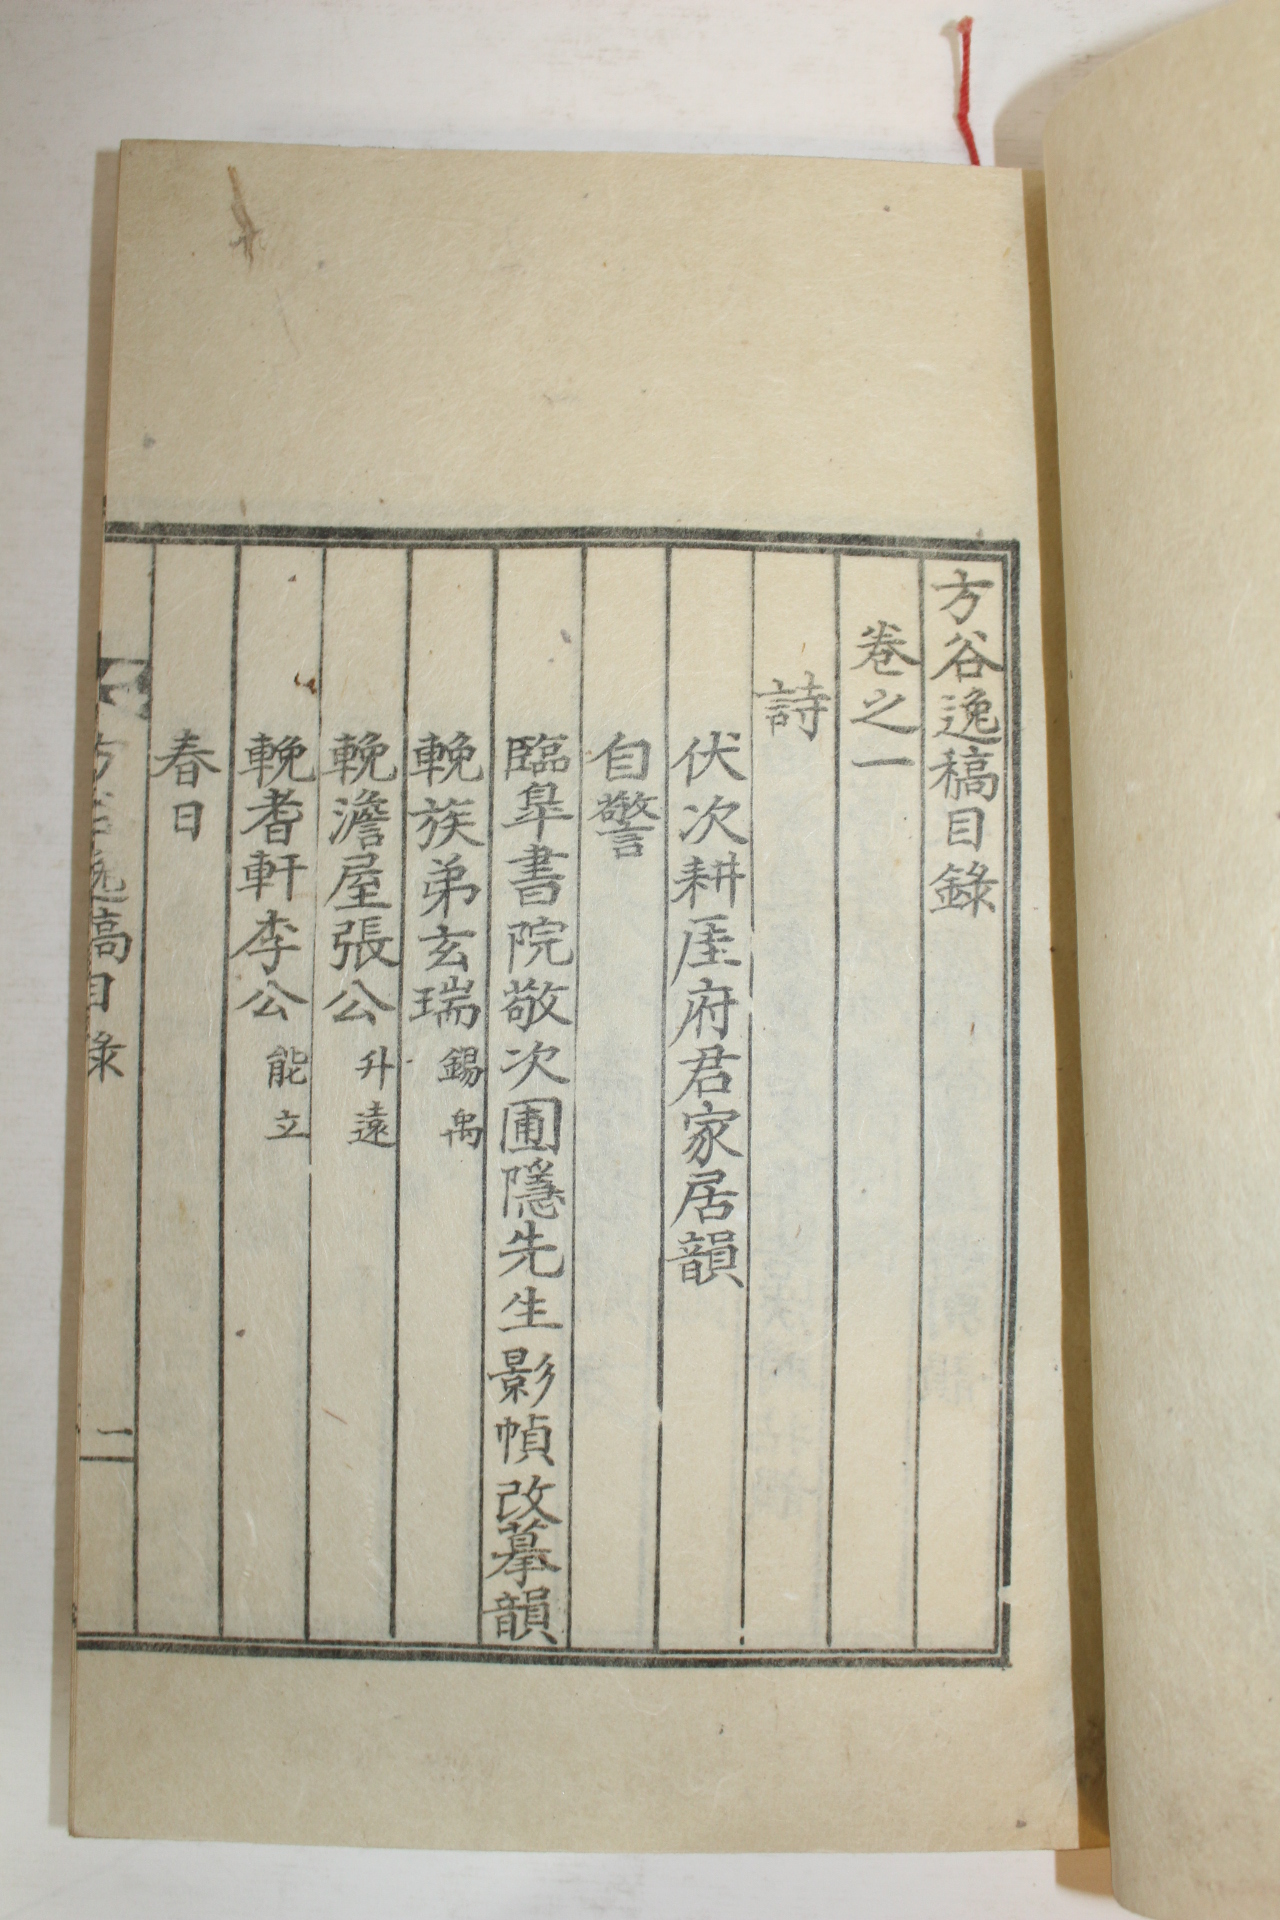 方谷逸稿目錄
卷之一
詩
伏次耕厓府君家居韻
自警
臨皐書院敬次圃隱先生影幀改摹韻
輓族弟玄瑞錫禹
輓澹屋張公升遠
輓耆軒李公能立
春日
方谷逸稿目錄
一